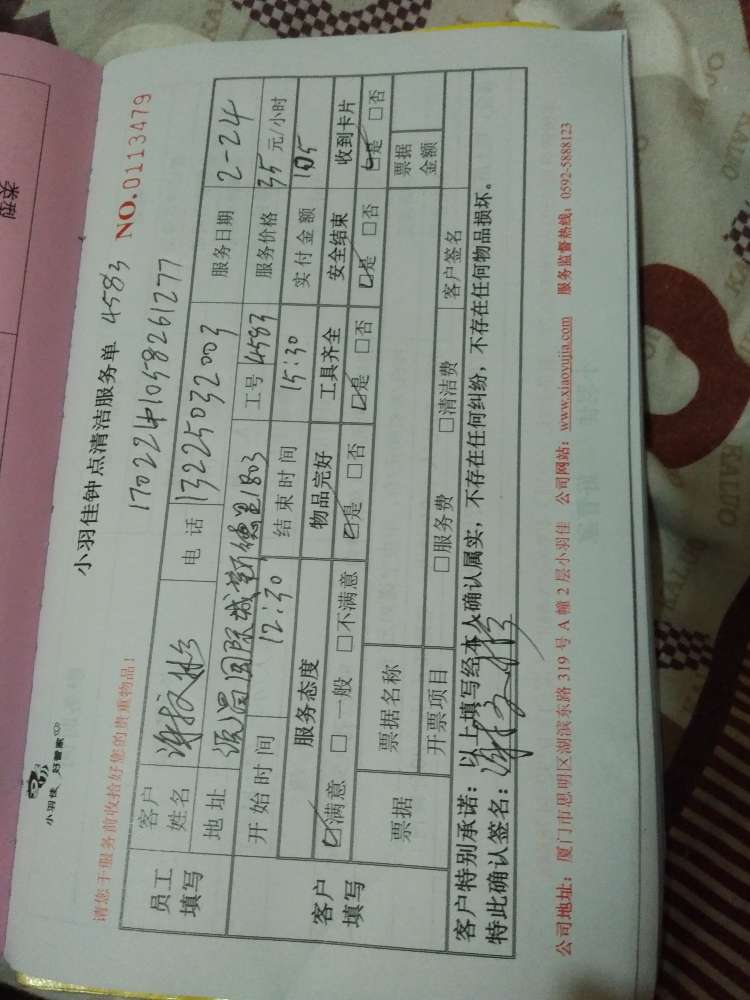 类型
小羽佳 好管家
请您于服务前收拾好您的贵重物品！
小羽佳钟点清洁服务单 4583 NO.0113479
1702241058261277
员工填写 客户姓名 电话 13225032003 服务日期 2-24
地址 国际城新德里1803 工号 4583 服务价格 35元/小时
客户填写 开始时间 12:30 结束时间 15:30 实付金额 105
服务态度 物品完好 工具齐全 安全结束 收到卡片
☑满意 □一般 □不满意 ☑是 □否 ☑是 □否 ☑是 □否 ☑是 □否
票据 票据名称 票据金额
开票项目 □服务费 □清洁费 客户签名
客户特别承诺：以上填写经本人确认属实，不存在任何纠纷，不存在任何物品损坏。
特此确认签名：
公司地址：厦门市思明区湖滨东路 319 号 A 幢 2 层小羽佳 公司网站：www.xiaoyujia.com 服务监督热线：0592-5888123